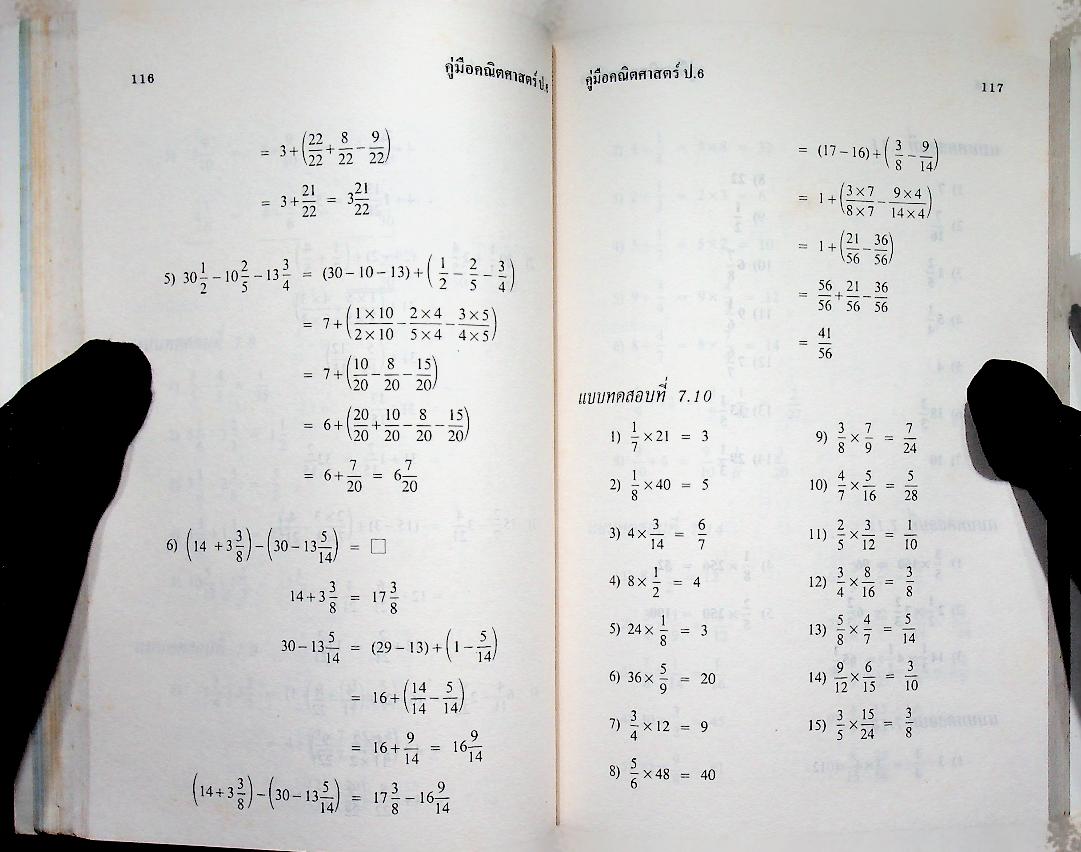 116
คู่มือคณิตศาสตร์ ป.6
= 3+(22/22+8/22−9/22)
= 3+21/22 = 3 21/22
5) 30 1/2−10 2/5−13 3/4 = (30−10−13)+(1/2−2/5−3/4)
= 7+(1×10/2×10−2×4/5×4−3×5/4×5)
= 7+(10/20−8/20−15/20)
= 6+(20/20+10/20−8/20−15/20)
= 6+7/20 = 6 7/20
6) (14+3 3/8)−(30−13 5/14) = □
14+3 3/8 = 17 3/8
30−13 5/14 = (29−13)+(1−5/14)
= 16+(14/14−5/14)
= 16+9/14 = 16 9/14
(14+3 3/8)−(30−13 5/14) = 17 3/8−16 9/14
คู่มือคณิตศาสตร์ ป.6
117
= (17−16)+(3/8−9/14)
= 1+(3×7/8×7−9×4/14×4)
= 1+(21/56−36/56)
= 56/56+21/56−36/56
= 41/56
แบบทดสอบที่ 7.10
1) 1/7×21 = 3
2) 1/8×40 = 5
3) 4×3/14 = 6/7
4) 8×1/2 = 4
5) 24×1/8 = 3
6) 36×5/9 = 20
7) 3/4×12 = 9
8) 5/6×48 = 40
9) 3/8×7/9 = 7/24
10) 4/7×5/16 = 5/28
11) 2/5×3/12 = 1/10
12) 3/4×8/16 = 3/8
13) 5/8×4/7 = 5/14
14) 9/12×6/15 = 3/10
15) 3/5×15/24 = 3/8